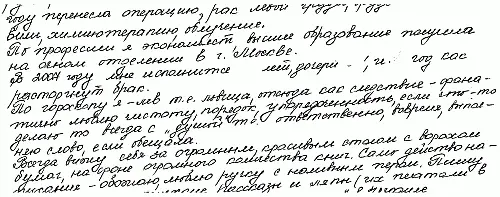 году перенесла операцию, рак левой груди,
Били, химиотерапию, облучение.
По профессии я экономист высшее образование получила
на очном отделении в г. Москве.
В 2004 году мне исполнится лет, дочери - , и. год как
расторгнут брак.
По гороскопу я - лев т.е. львица, отсюда как следствие - фана-
тично люблю чистоту, порядок, упорядоченность, если что-то
делаю то всегда с "душой" т.е. ответственно, вовремя, выпол-
няю слово, если обещала.
Всегда вижу себя за огромным, красивым столом с ворохом
бумаг, на фоне огромного количества книг. Само действо на-
писания - обожаю, люблю ручку с наливным пером. Пишу
рассказы и (их печатали в